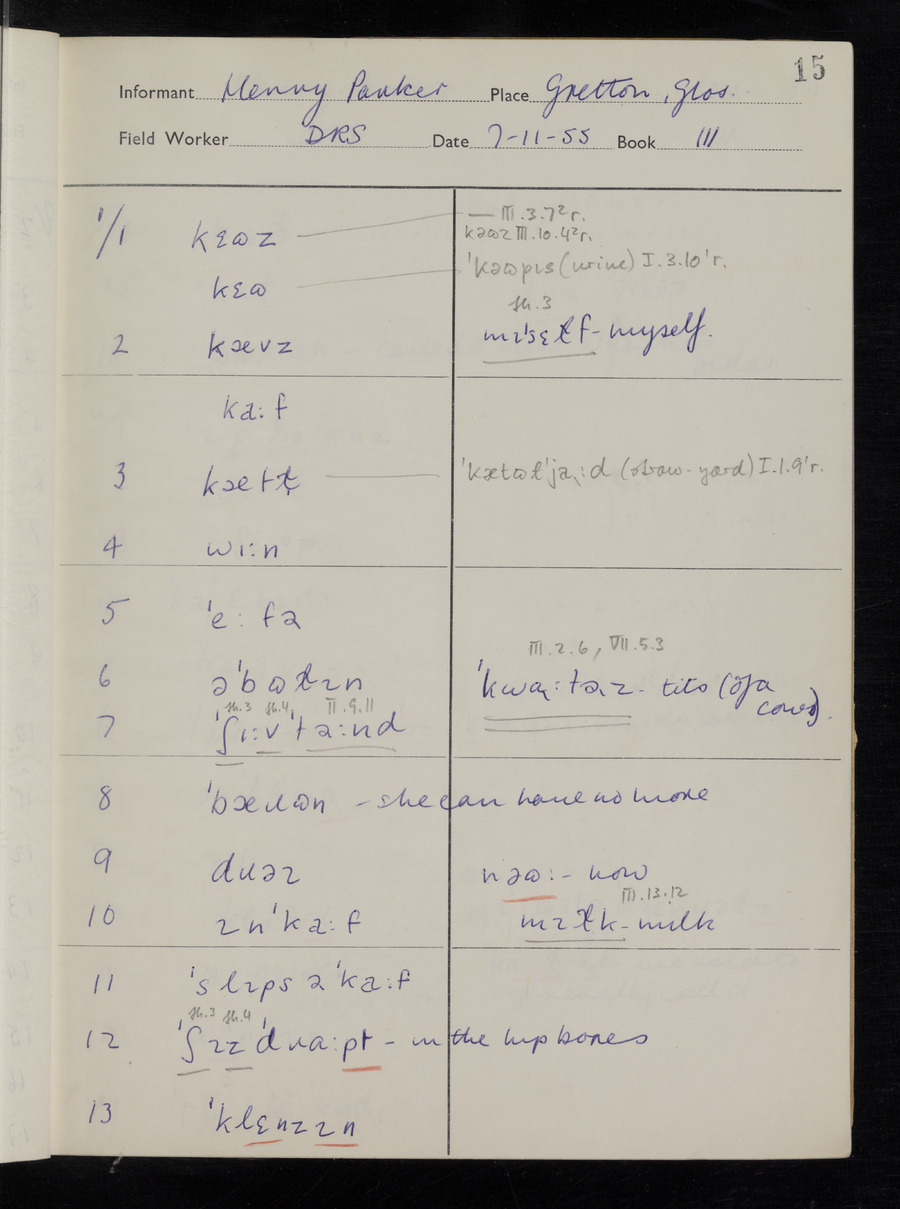 15
Informant Henry Parker Place Gretton, Glos.
Field Worker DRS Date 7-11-55 Book III
1/1 kɛɷz — III.3.7²r.
kəɷz III.10.4²r.
kɛɷ 'kəɷpɪs (urine) I.3.10'r.
sh.3
2 kævz mɪ'sɛɫf - myself.
ka:f
3 kætɫ 'kætɷɫ'ja:d (straw-yard) I.1.9'r.
4 wɪ:n
5 'e:fə
III.2.6, VII.5.3
6 ə'bɷɫɪn 'kwa:təɪz - tits (of a cow).
sh.3 sh.4, II.9.11
7 'ʃi:v'ta:nd
8 'bæɹɷn - she can have no more
9 dɹəɪ nəɷ: - now
III.13.12
10 ɪn'ka:f mɪɫk - milk
11 'slɪps ə'ka:f
sh.3 sh.4
12 'ʃɪz'dɹa:pt - in the hip bones
13 'klɛnzɪn